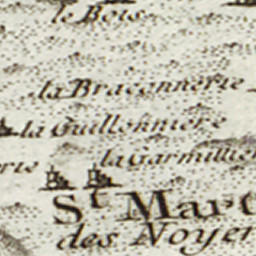 le Bois
la Braconnerie
la Guillonniere
la Garmillier
rie
St Mart
des Noyer